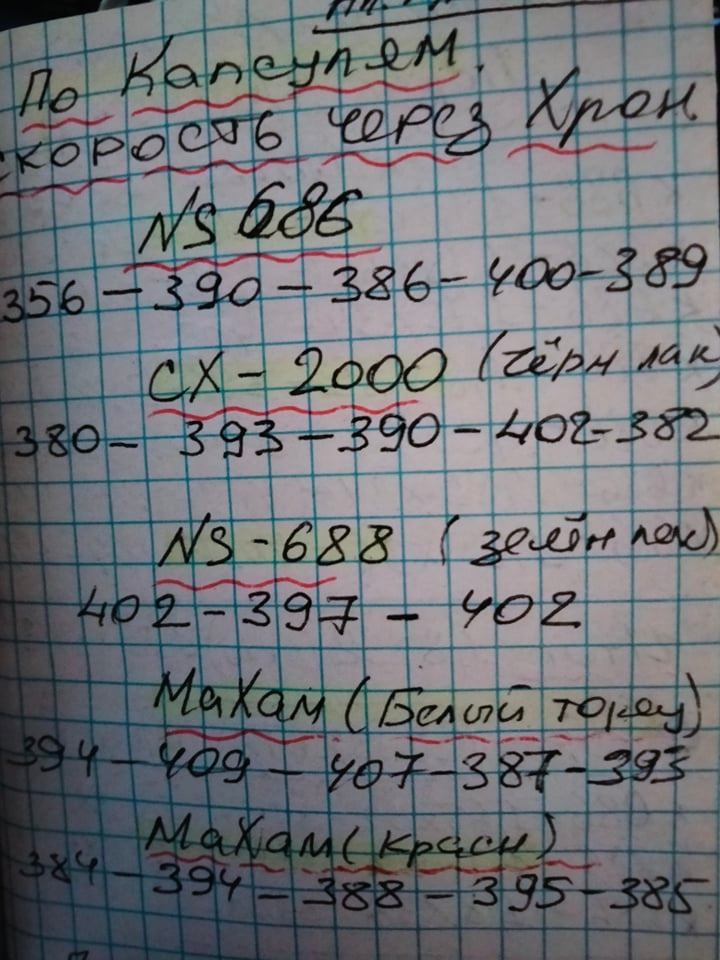 По Капсулям.
скорость через Хрон
NS 686
356 – 390 – 386 – 400 – 389
CX – 2000 (чёрн лак)
380 – 393 – 390 – 402 – 382
NS – 688 (зелён лак)
402 – 397 – 402
МаХам (Белый торец)
394 – 409 – 407 – 387 – 393
МаХам (красн)
384 – 394 – 388 – 395 – 385